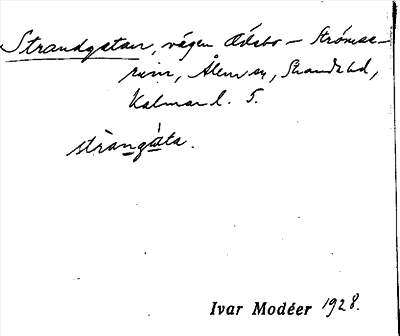 Strandgatan, vägen Ålsbo – Ströms-
rum, Ålem sn, Stranda hd,
Kalmar l. 5.
stràngáta.
Ivar Modéer 1928.